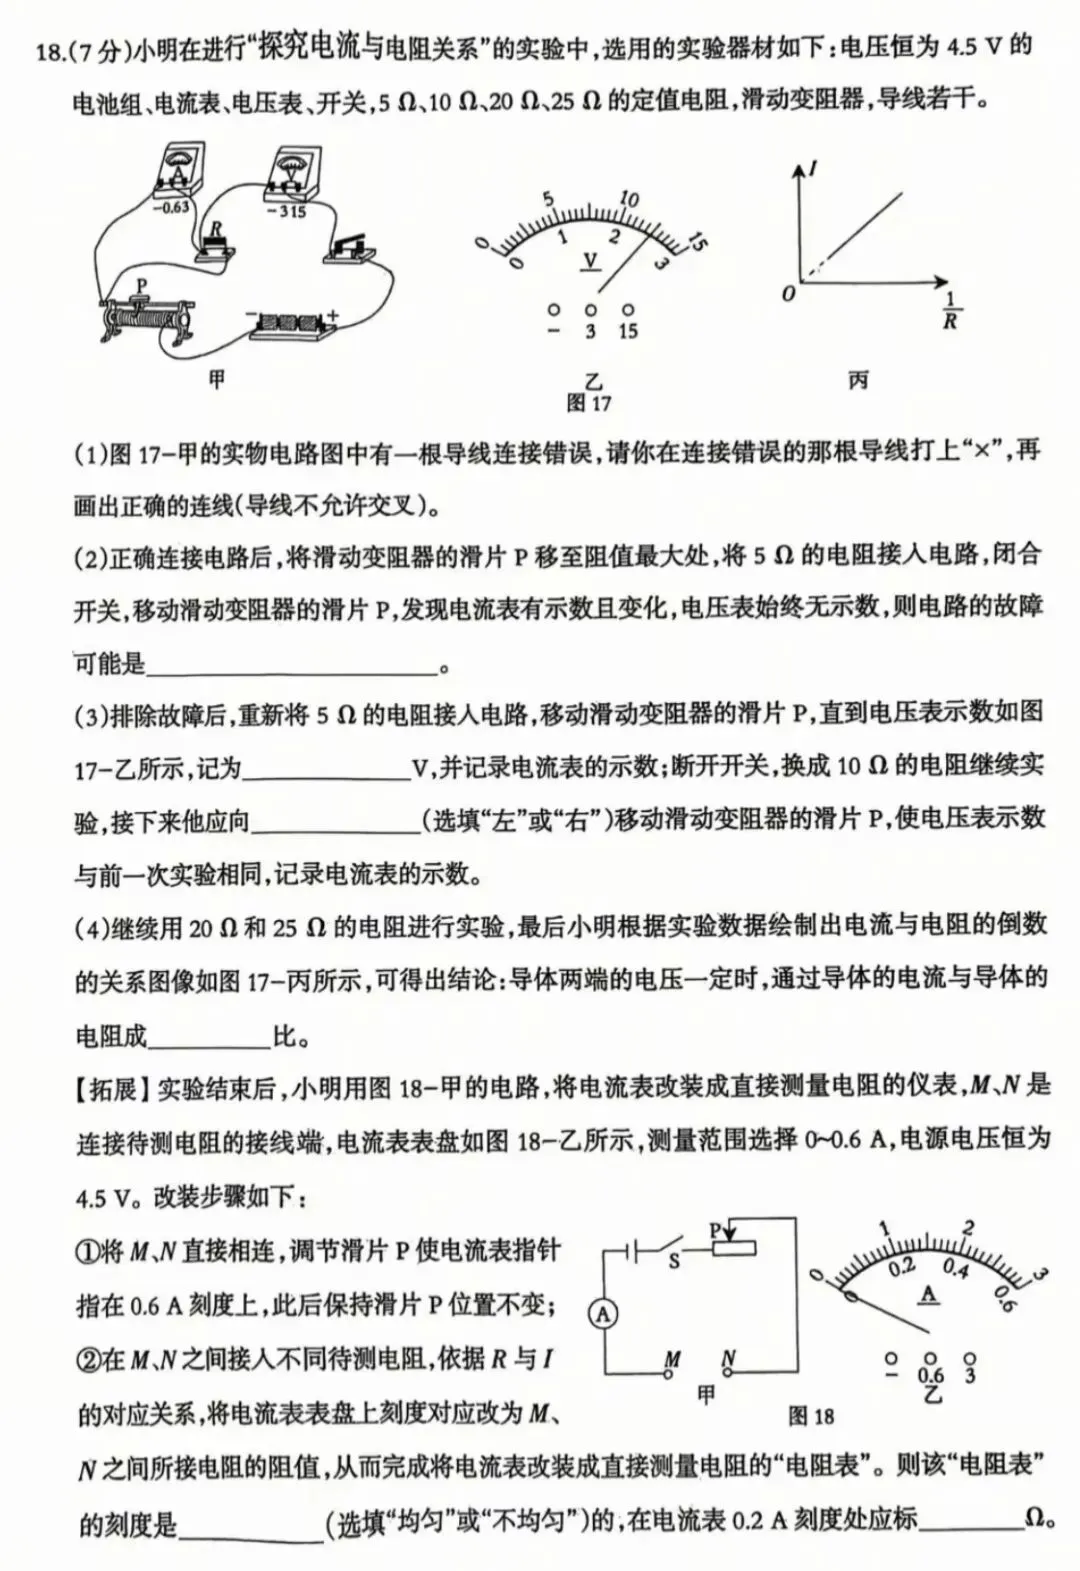 18.(7分)小明在进行“探究电流与电阻关系”的实验中,选用的实验器材如下:电压恒为 4.5 V 的
电池组、电流表、电压表、开关,5 Ω、10 Ω、20 Ω、25 Ω 的定值电阻,滑动变阻器,导线若干。
A
-0.63
V
-315
R
P
- +
甲
0 5 10 15
0 1 2 3
V
- 3 15
乙
图 17
I
O
1/R
丙
(1)图 17-甲的实物电路图中有一根导线连接错误,请你在连接错误的那根导线打上“×”,再
画出正确的连线(导线不允许交叉)。
(2)正确连接电路后,将滑动变阻器的滑片 P 移至阻值最大处,将 5 Ω 的电阻接入电路,闭合
开关,移动滑动变阻器的滑片 P,发现电流表有示数且变化,电压表始终无示数,则电路的故障
可能是____________。
(3)排除故障后,重新将 5 Ω 的电阻接入电路,移动滑动变阻器的滑片 P,直到电压表示数如图
17-乙所示,记为____________V,并记录电流表的示数;断开开关,换成 10 Ω 的电阻继续实
验,接下来他应向____________(选填“左”或“右”)移动滑动变阻器的滑片 P,使电压表示数
与前一次实验相同,记录电流表的示数。
(4)继续用 20 Ω 和 25 Ω 的电阻进行实验,最后小明根据实验数据绘制出电流与电阻的倒数
的关系图像如图 17-丙所示,可得出结论:导体两端的电压一定时,通过导体的电流与导体的
电阻成________比。
【拓展】实验结束后,小明用图 18-甲的电路,将电流表改装成直接测量电阻的仪表,M、N 是
连接待测电阻的接线端,电流表表盘如图 18-乙所示,测量范围选择 0~0.6 A,电源电压恒为
4.5 V。改装步骤如下:
①将 M、N 直接相连,调节滑片 P 使电流表指针
指在 0.6 A 刻度上,此后保持滑片 P 位置不变;
②在 M、N 之间接入不同待测电阻,依据 R 与 I
的对应关系,将电流表表盘上刻度对应改为 M、
P
S
A
M N
甲
0 1 2 3
0 0.2 0.4 0.6
A
- 0.6 3
乙
图 18
N 之间所接电阻的阻值,从而完成将电流表改装成直接测量电阻的“电阻表”。则该“电阻表”
的刻度是__________(选填“均匀”或“不均匀”)的,在电流表 0.2 A 刻度处应标________Ω。